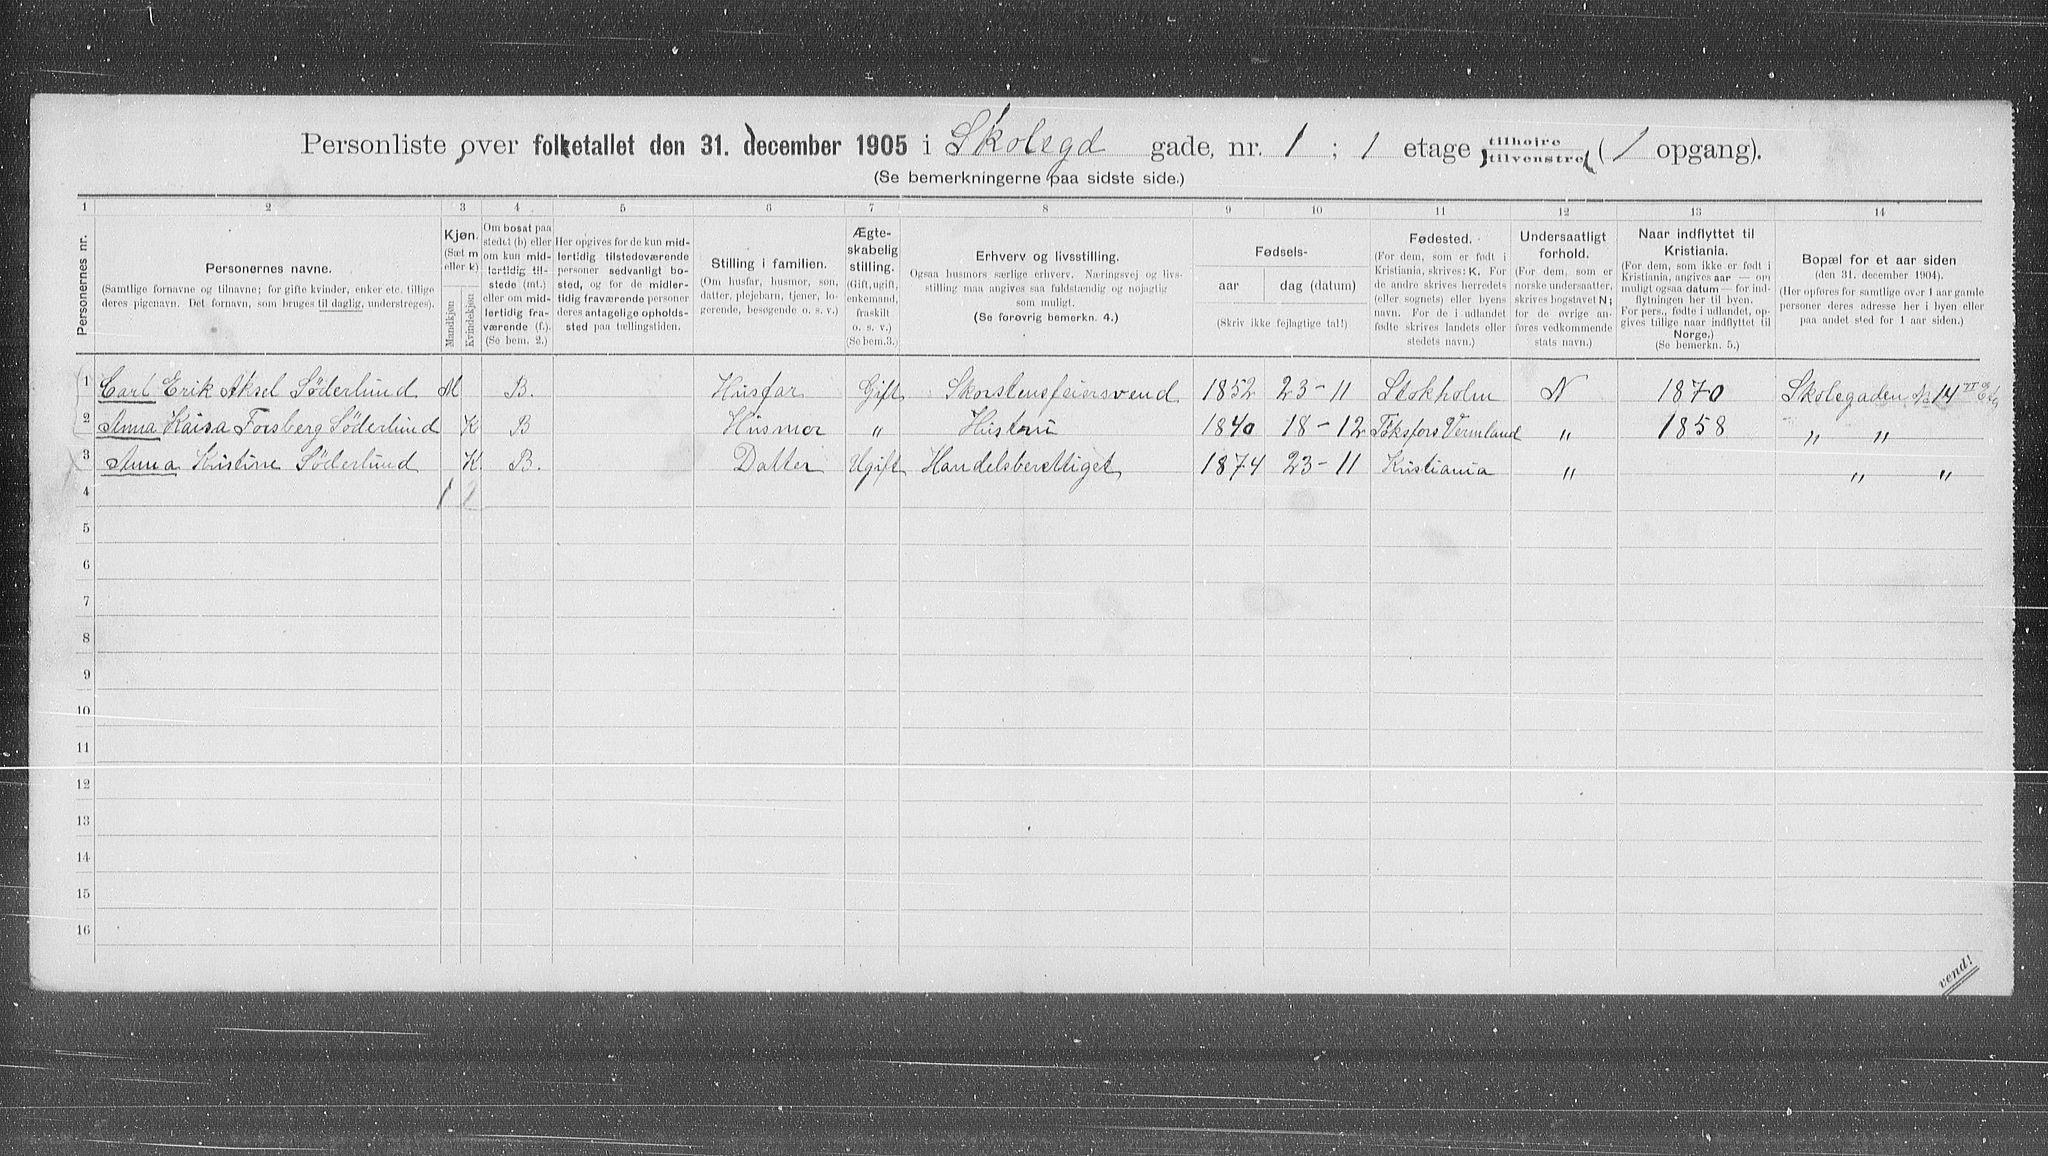 Personliste over folketallet den 31. december 1905 i Skolegd gade, nr. 1 ; 1 etage tilhøjre tilvenstre ( 1 opgang).
(Se bemerkningerne paa sidste side.)
1 2 3 4 5 6 7 8 9 10 11 12 13 14
Personernes nr.
Personernes navne.
(Samtlige fornavne og tilnavne; for gifte kvinder, enker etc. tillige
deres pigenavn. Det fornavn, som bruges til daglig, understreges).
Kjøn.
(Sæt m
eller k)
Mandkjøn
Kvindekjøn
Om bosat paa
stedet (b) eller
om kun mid-
lertidig til-
stede (mt.)
eller om mid-
lertidig fra-
værende (f.).
(Se bem. 2.)
Her opgives for de kun mid-
lertidig tilstedeværende
personer sedvanligt bo-
sted, og for de midler-
tidig fraværende personer
deres antagelige opholds-
sted paa tællingstiden.
Stilling i familien.
(Om husfar, husmor, søn,
datter, plejebarn, tjener, lo-
gerende, besøgende o. s. v.)
Ægte-
skabelig
stilling.
(Gift, ugift,
enkemand,
fraskilt
o. s. v.)
(Se bem.3.)
Erhverv og livsstilling.
Ogsaa husmors særlige erhverv. Næringsvej og livs-
stilling maa angives saa fuldstændig og nøjagtig
som muligt.
(Se forøvrig bemerkn. 4.)
Fødsels-
aar dag (datum)
(Skriv ikke fejlagtige tal!)
Fødested.
(For dem, som er født i
Kristiania, skrives: K. For
de andre skrives herredets
(eller sognets) eller byens
navn. For de i udlandet
fødte skrives landets eller
stedets navn.)
Undersaatligt
forhold.
(For dem, som er
norske undersaatter,
skrives bogstavet N;
for de øvrige an-
føres vedkommende
stats navn.)
Naar indflyttet til
Kristiania.
(For dem, som ikke er født i
Kristiania, angives aar — om
muligt ogsaa datum — for ind-
flytningen her til byen.
For pers., fødte i udlandet, op-
gives tillige naar indflyttet til
Norge.)
(Se bemerkn. 5.)
Bopæl for et aar siden
(den 31. december 1904).
(Her opføres for samtlige over 1 aar gamle
personer deres adresse her i byen eller
paa andet sted for 1 aar siden.)
1 Carl Erik Aksel Søderlund M B. Husfar Gift Skorstensfeiersvend 1852 23-11 Stokholm N 1870 Skolegaden 14
2 Anna Kaisa Forsberg Søderlund K B Husmor " Hustru 1840 18-12 Töksfors Vermland " 1858 " "
3 Anna Kristine Søderlund K B. Datter Ugift Handelsberettiget 1874 23-11 Kristiania " " "
4 1 2
5
6
7
8
9
10
11
12
13
14
15
16
vend!